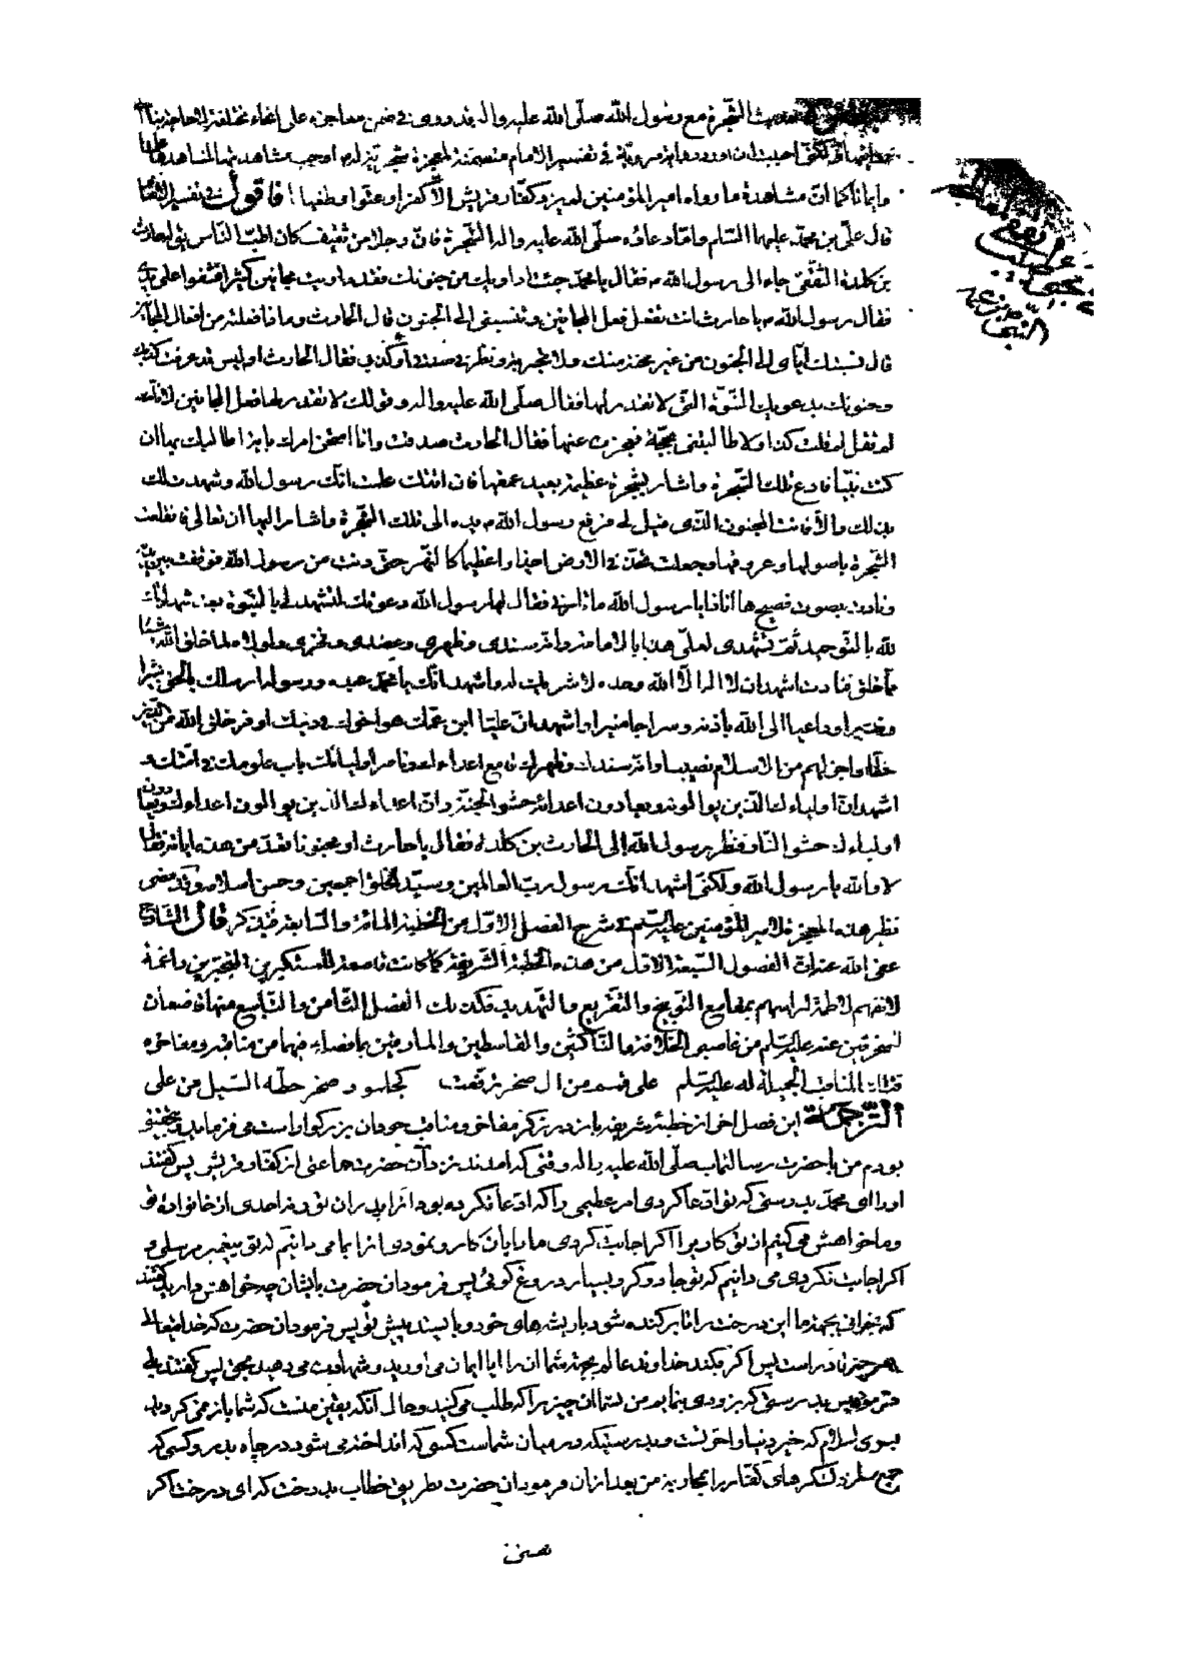 الشّجرة مع رسول الله صلّى الله عليه وآله قد روى في ضمن معاجزه على انحاء مختلفة
احببت ان اورد رواية مروية في تفسير الامام متضمنة لمعجزة شجرية له اوجب مشاهدتها لمشاهدها
وايمانا كما انّ مشاهدة ما رواه امير المؤمنين لم يزد كفّار قريش الّا كفرا وعتوا وطغيا فاقول في تفسير الامام
قال علىّ بن محمّد عليهما السّلام وامّا دعاؤه صلّى الله عليه وآله الشّجرة فانّ رجلا من ثقيف كان اطبّ النّاس يقال له حارث
بن كلدة الثّقفى جاء الى رسول الله فقال يا محمّد جئت اداويك من جنونك فقد داويت مجانين كثيرا فشفوا على يدى
فقال رسول الله يا حارث انت تفعل فعل المجانين وتنسبنى الى الجنون قال الحارث وماذا فعلته من افعال المجانين
قال نسبتك ايّاى الى الجنون من غير محنة منك ولا تجربة ونظر فى صدقى او كذبى فقال الحارث اوليس قد عرفت كذبك
وجنونك بدعويك النّبوّة الّتى لا تقدر لها فقال صلّى الله عليه وآله وقولك لا تقدر لها فعل المجانين لانّك
لم تقل لم قلت كذا ولا طالبتنى بحجّة فعجزت عنها فقال الحارث صدقت وانا امتحن امرك باية اطالبك بها ان
كنت نبيّا فادع تلك الشّجرة واشار بشجرة عظيمة بعيد عمقها فان اتتك علمت انّك رسول الله وشهدت لك
بذلك والّا فانت المجنون الّذى قيل لى فرفع رسول الله يده الى تلك الشّجرة واشار اليها ان تعالى فانقلعت
الشّجرة باصولها وعروقها وجعلت تخدّ فى الارض اخدودا عظيما كالنّهر حتّى دنت من رسول الله فوقفت بين يديه
ونادت بصوت فصيح ها انا ذا يا رسول الله ما تأمرنى فقال لها رسول الله دعوتك لتشهد لى بالنّبوّة بعد شهادتك
لله بالتّوحيد ثمّ تشهدى لعلىّ هذا بالامامة وانّه سندى وظهرى وعضدى وفخرى ولولاه لما خلق الله شيئا
ممّا خلق فنادت اشهد ان لا اله الّا الله وحده لا شريك له واشهد انّك يا محمّد عبده ورسوله ارسلك بالحقّ بشيرا
ونذيرا وداعيا الى الله باذنه وسراجا منيرا واشهد انّ عليّا ابن عمّك هو اخوك فى دينك اوفر خلق الله من الدّين
حظّا واجزلهم من الاسلام نصيبا وانّه سندك وظهرك قامع اعدائك وناصر اوليائك باب علومك فى امّتك و
اشهد انّ اولياءك الّذين يوالونه ويعادون اعدائه حشو الجنّة وانّ اعداءك الّذين يوالون اعداءك ويعادون
اولياءك حشو النّار فنظر رسول الله الى الحارث بن كلدة فقال يا حارث او مجنونا يعدّ من هذه اياته فقال
لا والله يا رسول الله ولكنّى اشهد انّك رسول ربّ العالمين وسيّد الخلق اجمعين وحسن اسلامه وقد مضى
نظير هذه المعجزة لامير المؤمنين عليه السّلم فى شرح الفصل الاوّل من الخطبة المائة والسّابعة فتذكّر قال الشّارح
عفى الله عنه انّ الفصول السّبعة الاول من هذه الخطبة الشّريفة كما كانت قاصعة للمستكبرين المتجبّرين راغمة
لانفهم لاطمة لراسهم بمقامع التّوبيخ والتّقريع والتّهديد فكذلك الفصل الثّامن والتّاسع منها قاصعان
للمنحرفين عنه عليه السّلم من غاصبى الخلافة والنّاكثين والقاسطين والمارقين بما فصّله فيهما من مناقبه ومفاخره
فتلك المناقب الجميلة له عليه السّلم على قمم من ال صخر ترفّعت كجلمود صخر حطّه السّيل من على
التّرجمة اين فصل اخر از خطبه شريفه باز در ذكر مفاخر و مناقب خود آن بزركوار است مى فرمايد و بتحقيق
بودم من با حضرت رسالتماب صلّى الله عليه وآله وقتى كه امدند نزد آن حضرت جماعتى از كفّار قريش پس كفتند
او را اى محمّد بدرستى كه تو ادّعا كردى امر عظيمى را كه ادّعا نكرده بود انرا پدران تو و نه احدى از خانواده تو
و ما خواهش مى كنيم از تو كارى را اكر اجابت كردى ما را بان كار و نمودى انرا بما مى دانيم كه تو پيغمبر مرسلى و
اكر اجابت نكردى مى دانيم كه تو جادوكر و بسيار دروغ كوئى پس فرمود آن حضرت بايشان چه خواهش داريد كفتند
كه بخوانى بجهة ما اين درخت را تا بركنده شود با ريشه هاى خود و بايستد پيش تو پس فرمود ان حضرت كه خداى تعالى
بهر چيز قادر است پس اكر بكند خداوند عالم بجهة شما ان را ايا ايمان مى آوريد و شهادت مى دهيد بحق پس كفتند بلى
فرمود پس بدرستى كه بزودى بنمايم من بشما ان چيزى را كه طلب مى كنيد و حال آنكه يقين منست كه شما باز نمى كرديد
بسوى اسلام كه خير دنيا و اخرتست و بدرستيكه در ميان شماست كسى كه انداخته مى شود در چاه بدر و كسى كه
جمع سازد لشكرهاى كفّار را بمحاربه من بعد از ان فرمود ان حضرت بطريق خطاب بدرخت كه اى درخت اكر